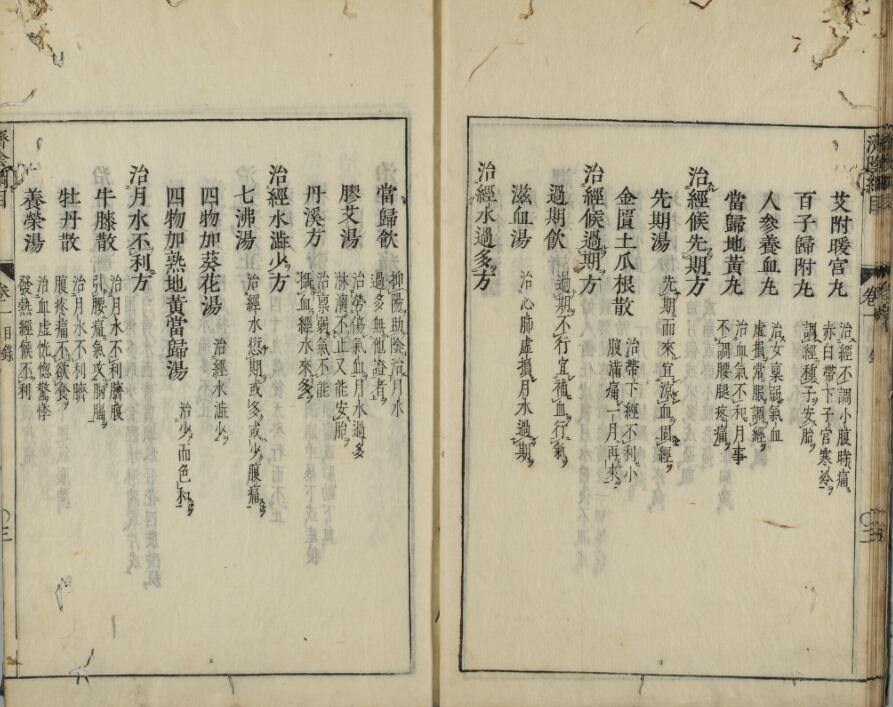 艾附暖宮丸
治經不調小腹時痛
赤白帶下子宮寒冷
百子歸附丸
調經種子安胎
人參養血丸
治女稟弱氣血
虛損常服調經
當歸地黃丸
治血氣不和月事
不調腰腿疼痛
治經候先期方
先期湯
先期而來宜涼血固經
金匱土瓜根散
治帶下經不利小
腹滿痛一月再來
治經候過期方
過期飲
過期不行宜補血行氣
滋血湯
治心肺虛損月水過期
治經水過多方
濟陰綱目
卷一
目錄
當歸飲
抑陽助陰治月水
過多無他證者
膠艾湯
治勞傷氣血月水過多
淋漓不止又能安胎
丹溪方
治稟弱氣不能
攝血經水來多
治經水澁少方
七沸湯
治經水愆期或多或少腹痛
四物加葵花湯
治經水澁少
四物加熟地黃當歸湯
治少而色和
治月水不利方
牛膝散
治月水不利臍腹
引腰痛氣攻胸膈
牡丹散
治月水不利臍
腹疼痛不欲食
養榮湯
治血虛恍惚驚悸
發熱經候不利